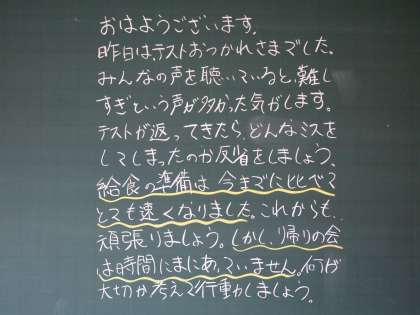 おはようございます。
昨日は、テストおつかれさまでした。
みんなの声を聴いていると、難し
すぎという声が多かった気がします。
テストが返ってきたら、どんなミスを
してしまったのか反省をしましょう。
給食の準備は今までに比べて
とても速くなりました。これからも、
頑張りましょう。しかし、帰りの会
は時間にまにあっていません。何が
大切か考えて行動しましょう。